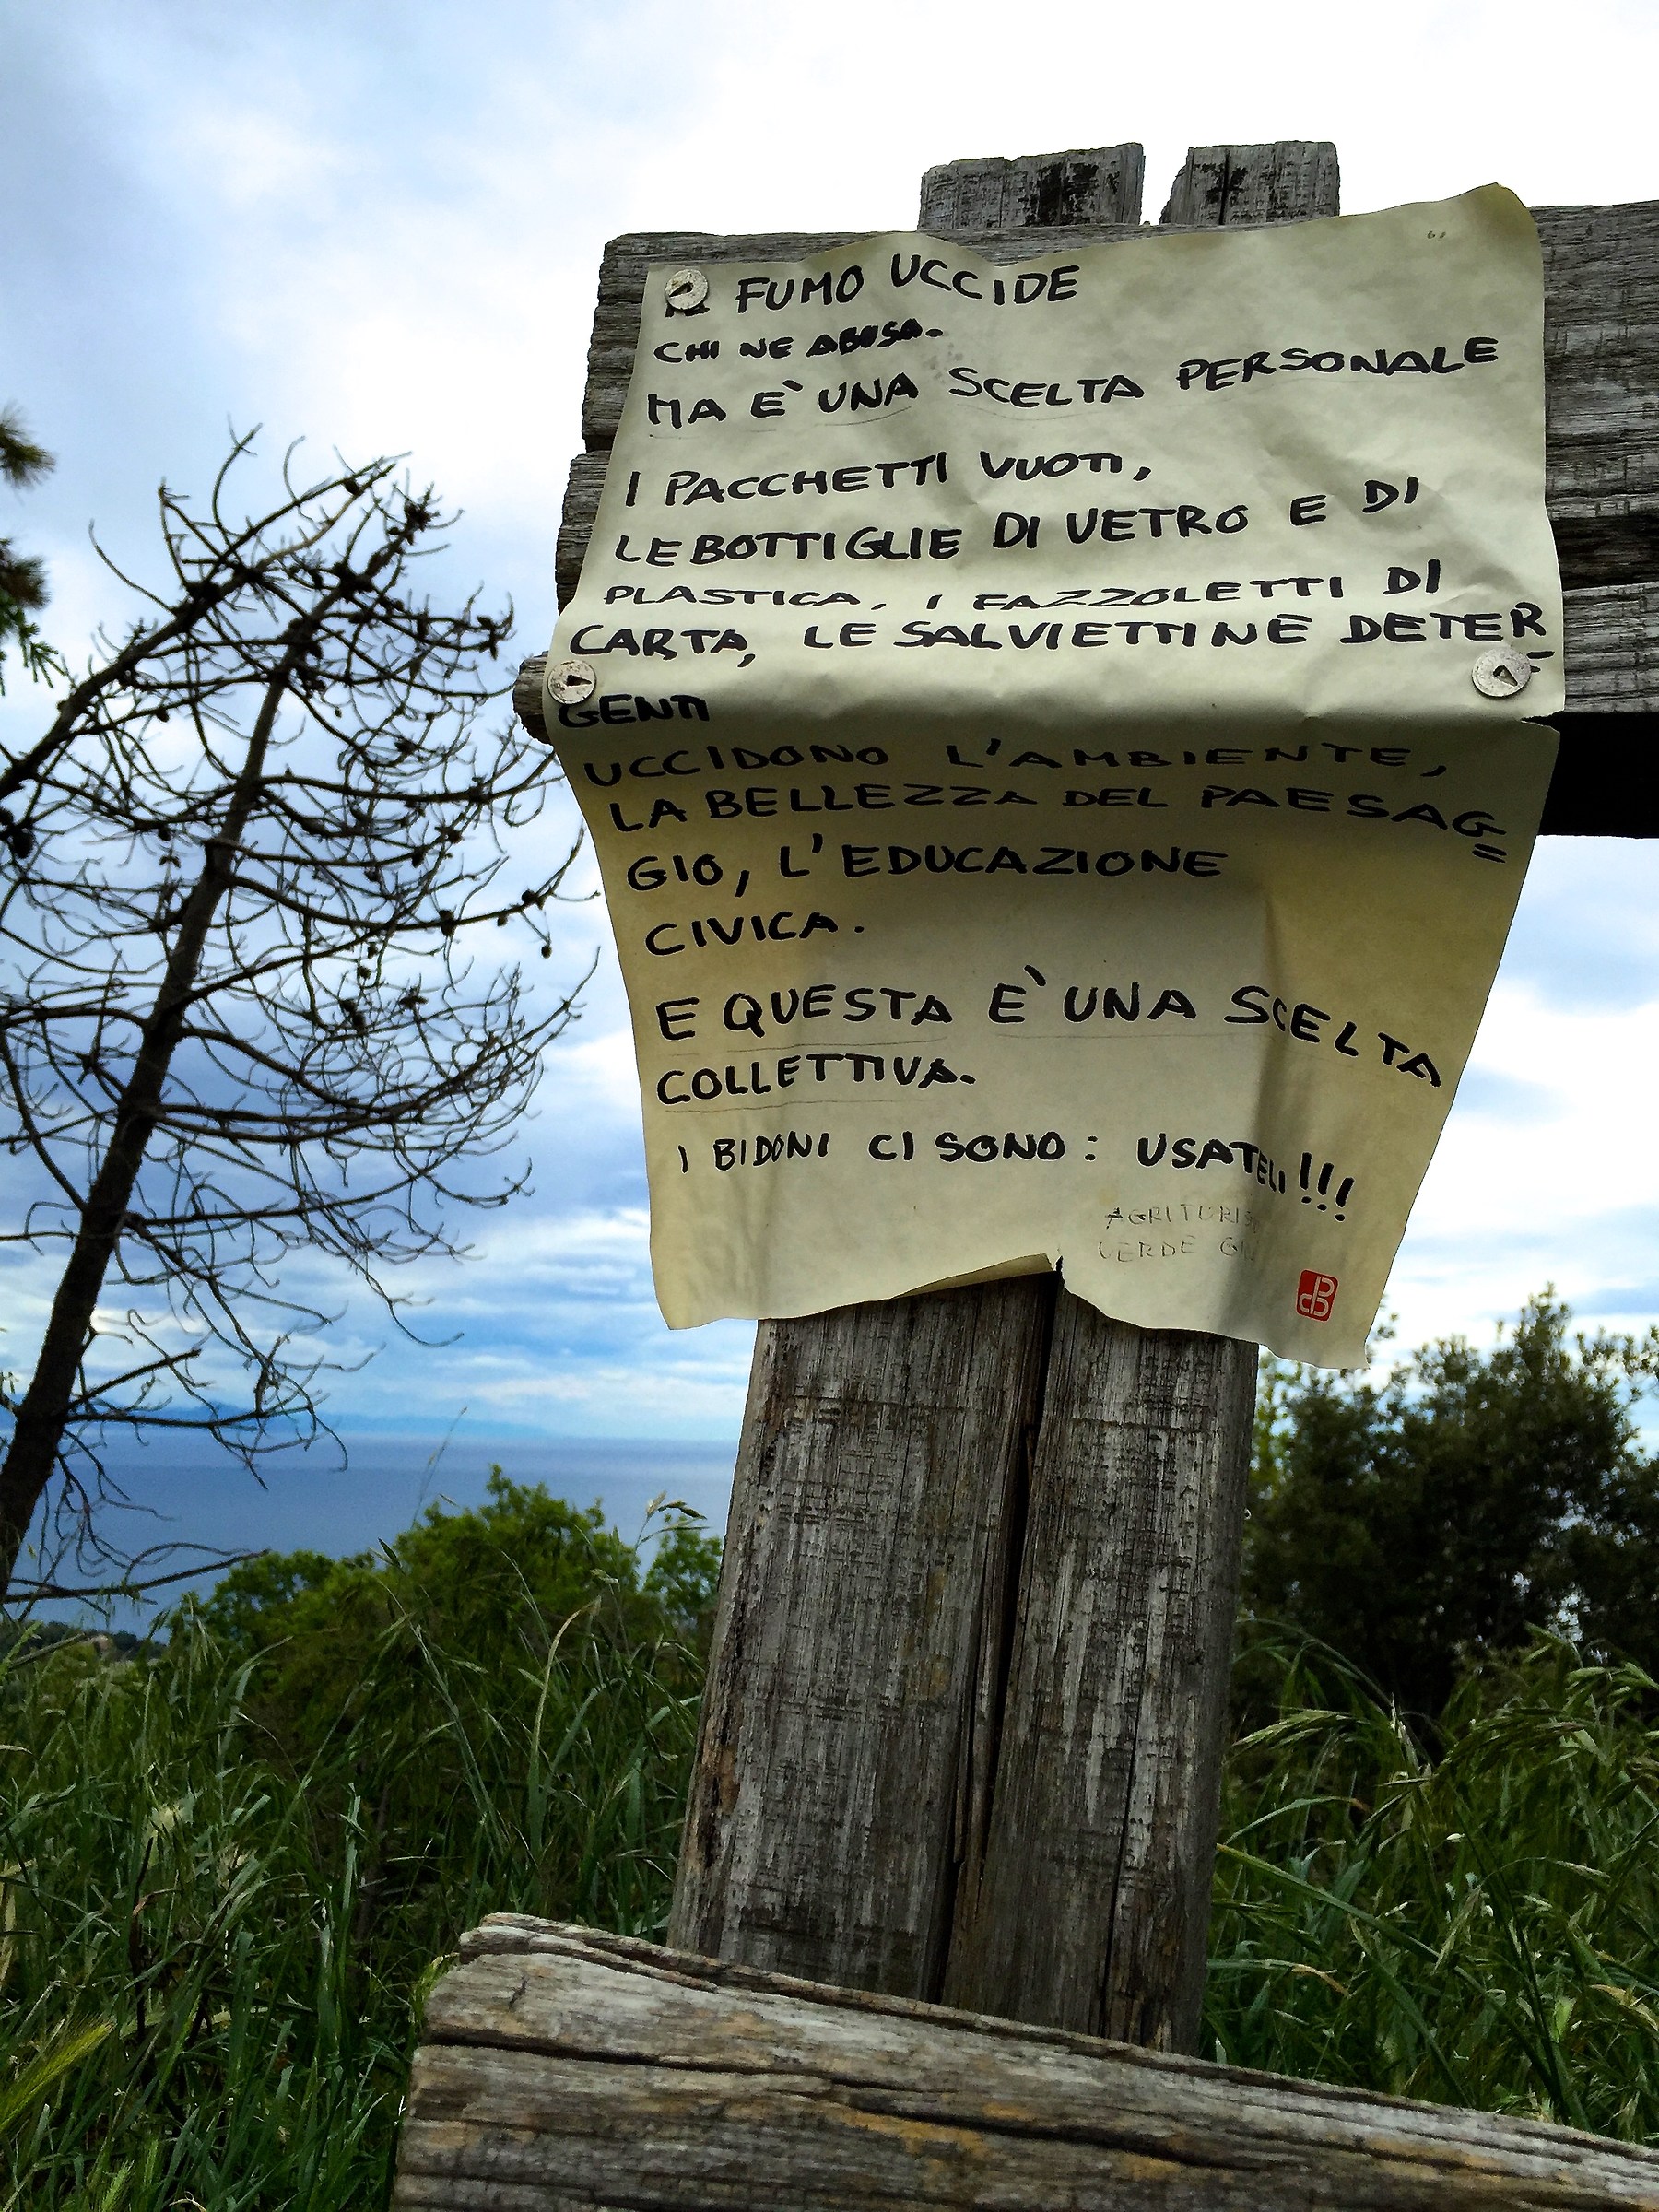 IL FUMO UCCIDE
CHI NE ABUSA.
MA E` UNA SCELTA PERSONALE
I PACCHETTI VUOTI,
LE BOTTIGLIE DI VETRO E DI
PLASTICA, I FAZZOLETTI DI
CARTA, LE SALVIETTINE DETER=
GENTI
UCCIDONO L'AMBIENTE,
LA BELLEZZA DEL PAESAG=
GIO, L'EDUCAZIONE
CIVICA.
E QUESTA E` UNA SCELTA
COLLETTIVA.
I BIDONI CI SONO: USATELI!!!
VERDE